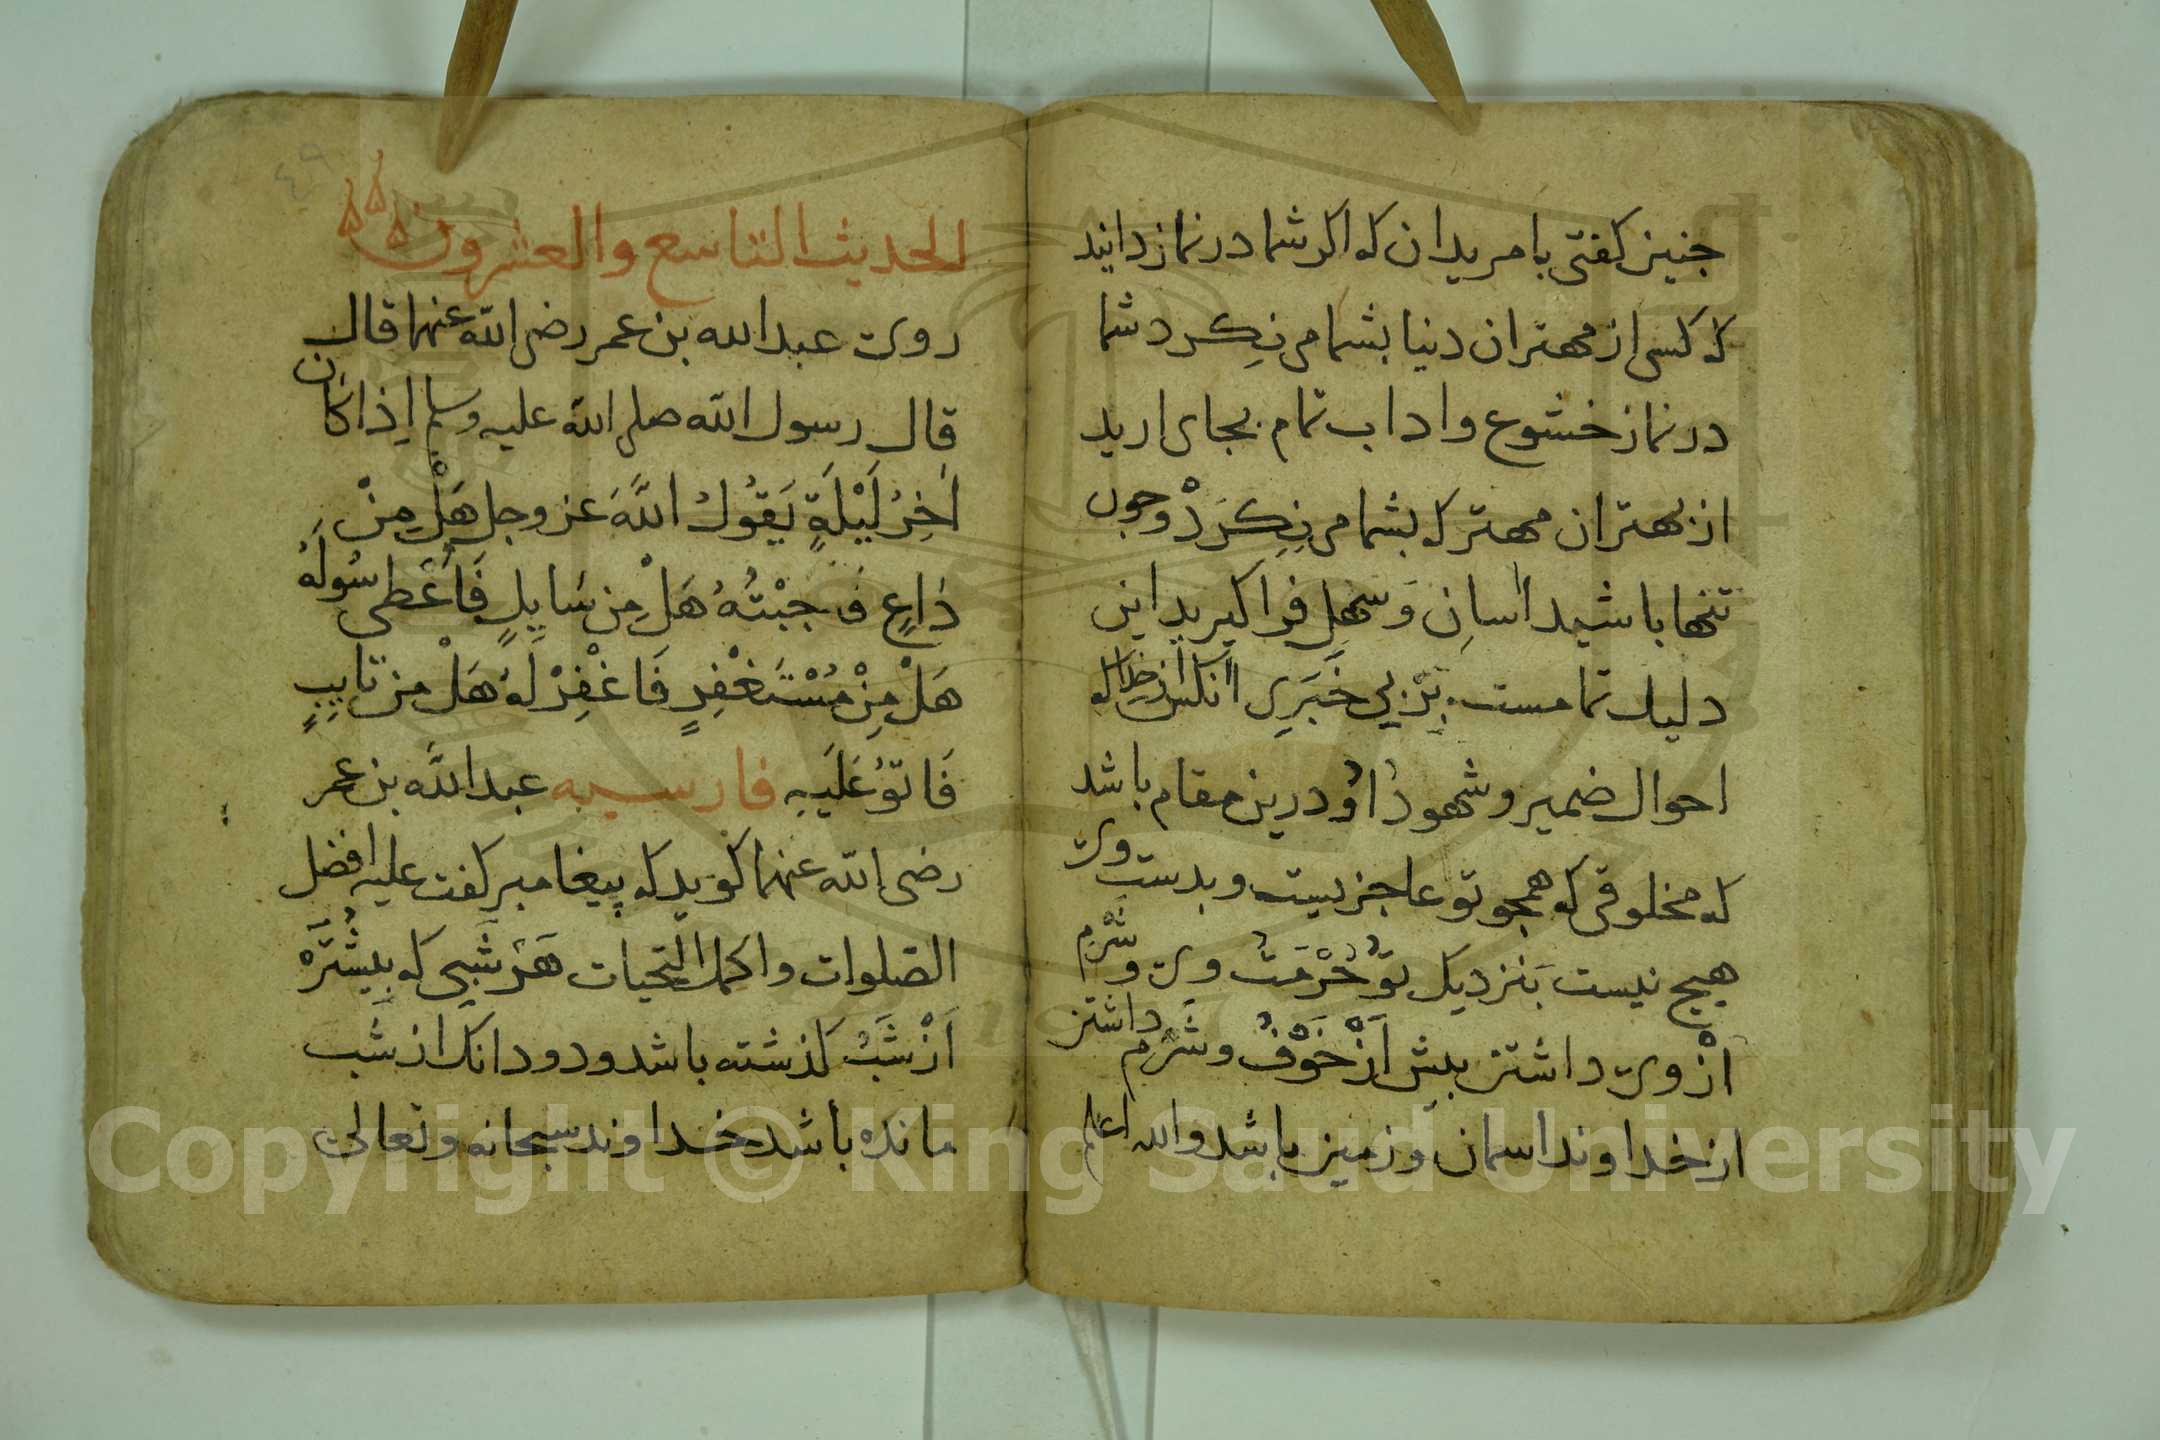 جنین کفتی با مریدان که اکر شما در نماز دانید
که کسی از مهتران دنیا بشما می نِکِرد شما
در نماز خشوع و اداب تمام بجای ارید
از بهتران مهتر که بشما می نِکِرَدْ و جون
تنها باشید اسانِ وَ سهلِ فرا کیرید این
دلیل تمامست بَرْ بی خَبَرِی انکس از خدای که
احوال ضمیر و شهودِ اوُ درین مقام باشد
که مخلوقی که همجو تو عاجزیست و بدست وی
هیج نیست بَنزدیک توُ حُرْمَتْ وی و شَرْم
ازْ وی داشتن بیش اَزْ خَوْفْ و شَرْم داشتن
از خداوند اسمان و زمین باشد والله اعلم
٤٩
الحدیث التاسع والعشرون
روی عبدالله بن عمر رضی الله عنهما قال
قال رسول الله صلی الله علیه وسلم اِذا کان
اخِرُ لَیْلَةٍ یَقوُلُ اللَّهَ عز وجل هَلْ مِنْ
دٰاعٍ فاجبْتُهُ هَلْ مِن سَایِلٍ فَأعْطی سُولَهُ
هَلْ مِنْ مُسْتَغْفِرٍ فَاغْفِرْ لَهُ هَلْ مِن تایِبٍ
فَاتوُ عَلَیهِ فارسیه عبدالله بن عمر
رضی الله عنهما کوید که پیغامبر کفت علیه افضل
الصّلوات و اکمل التّحیات هَرْ شَبی که بیشُتَرَهْ
اَزْ شَبْ کذشته باشد و دو دانک از شب
مانده باشد خداوند سبحانه وتعالی
Copyright © King Saud University